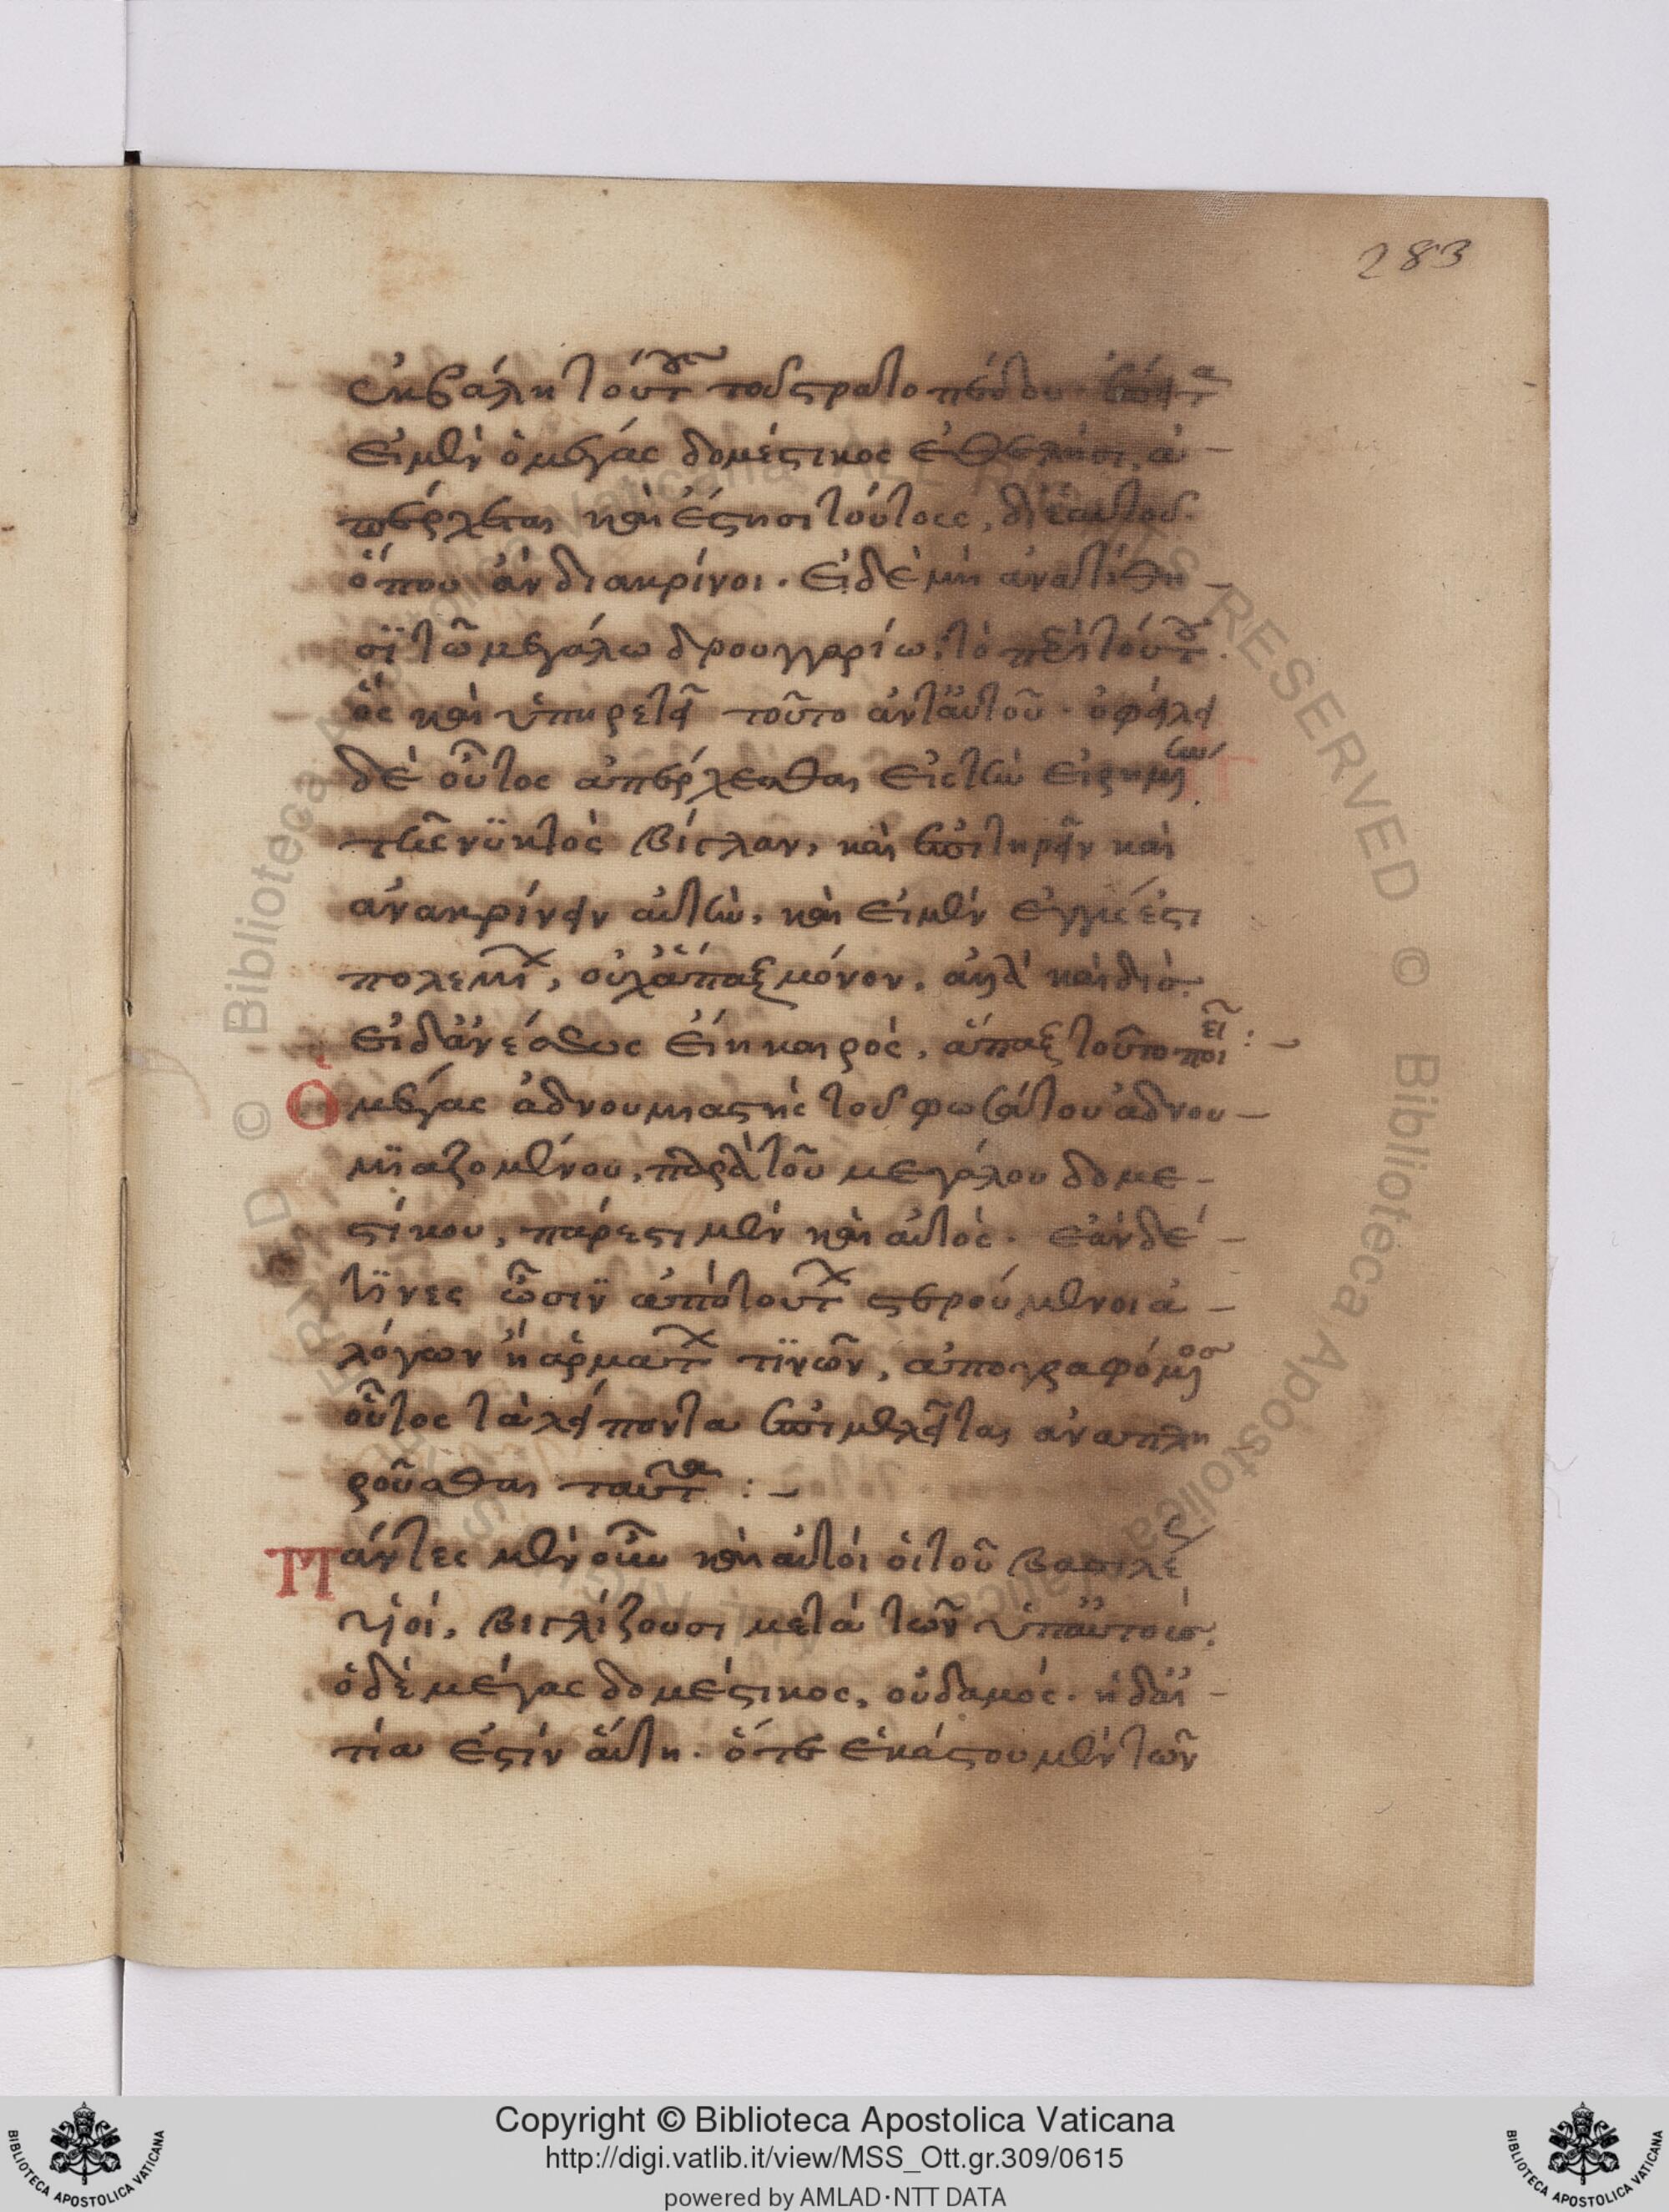 283
ἐκβάλη τούτους τοῦ στρατοπέδου. ἔπειτα
εἰ μὲν ὁ μέγας δομέστικος ἐθελήσει, ἀ-
πέρχεται καὶ ἵστησι τούτους, δι' ἑαυτοῦ
ὅπου ἂν διακρίνοι. εἰ δὲ μὴ ἀνατίθη-
σϊ τῶ μεγάλω δρουγγαρίω, τὸ περὶ τούτου.
ὃς καὶ ὑπηρετεῖ τοῦτο ἀντ' αὐτοῦ. ὀφείλει
δὲ οὗτος ἀπέρχεσθαι εἰς τὴν εἰρημένην
τῆς νϋκτὸς βίγλαν, καὶ ἐπιτηρεῖν καὶ
ἀνακρίνειν αὐτὴν, καὶ εἰ μὲν ἐγγύς ἐστι
πολεμίων, οὐχ ἅπαξ μόνον, ἀλλὰ καὶ δίς.
εἰ δ' ἄνέσεως εἴη καιρὸς, ἅπαξ τοῦτο ποιεῖ :-
Ὁ μέγας ἀδνουμιαστὴς τοῦ φωσάτου ἀδνου-
μϊαζομένου, παρὰ τοῦ μεγάλου δομε-
στίκου, πάρεστι μὲν καὶ αὐτὸς. ἐὰν δέ
τϊνες ὦσϊν ἀπὸ τούτων στερούμενοι ἀ-
λόγων ἢ ἁρμάτων τϊνῶν, ἀπογραφόμενος
οὗτος τὰ λείποντα ἐπιμελεῖται ἀναπλη
ροῦσθαι ταῦτα :-
Πάντες μὲν οὖν καὶ αὐτοὶ οἱ τοῦ βασιλέως
υἱοί, βιγλίζουσι μετὰ τῶν ὑπ' αὐτούς.
ὁ δὲ μέγας δομέστικος, οὐδαμός. ἡ δ' αἰ-
τία ἐστὶν αὕτη. ὅτε ἑκάστου μὲν τῶν
Copyright © Biblioteca Apostolica Vaticana
http://digi.vatlib.it/view/MSS_Ott.gr.309/0615
powered by AMLAD·NTT DATA
BIBLIOTECA APOSTOLICA VATICANA
BIBLIOTECA APOSTOLICA VATICANA